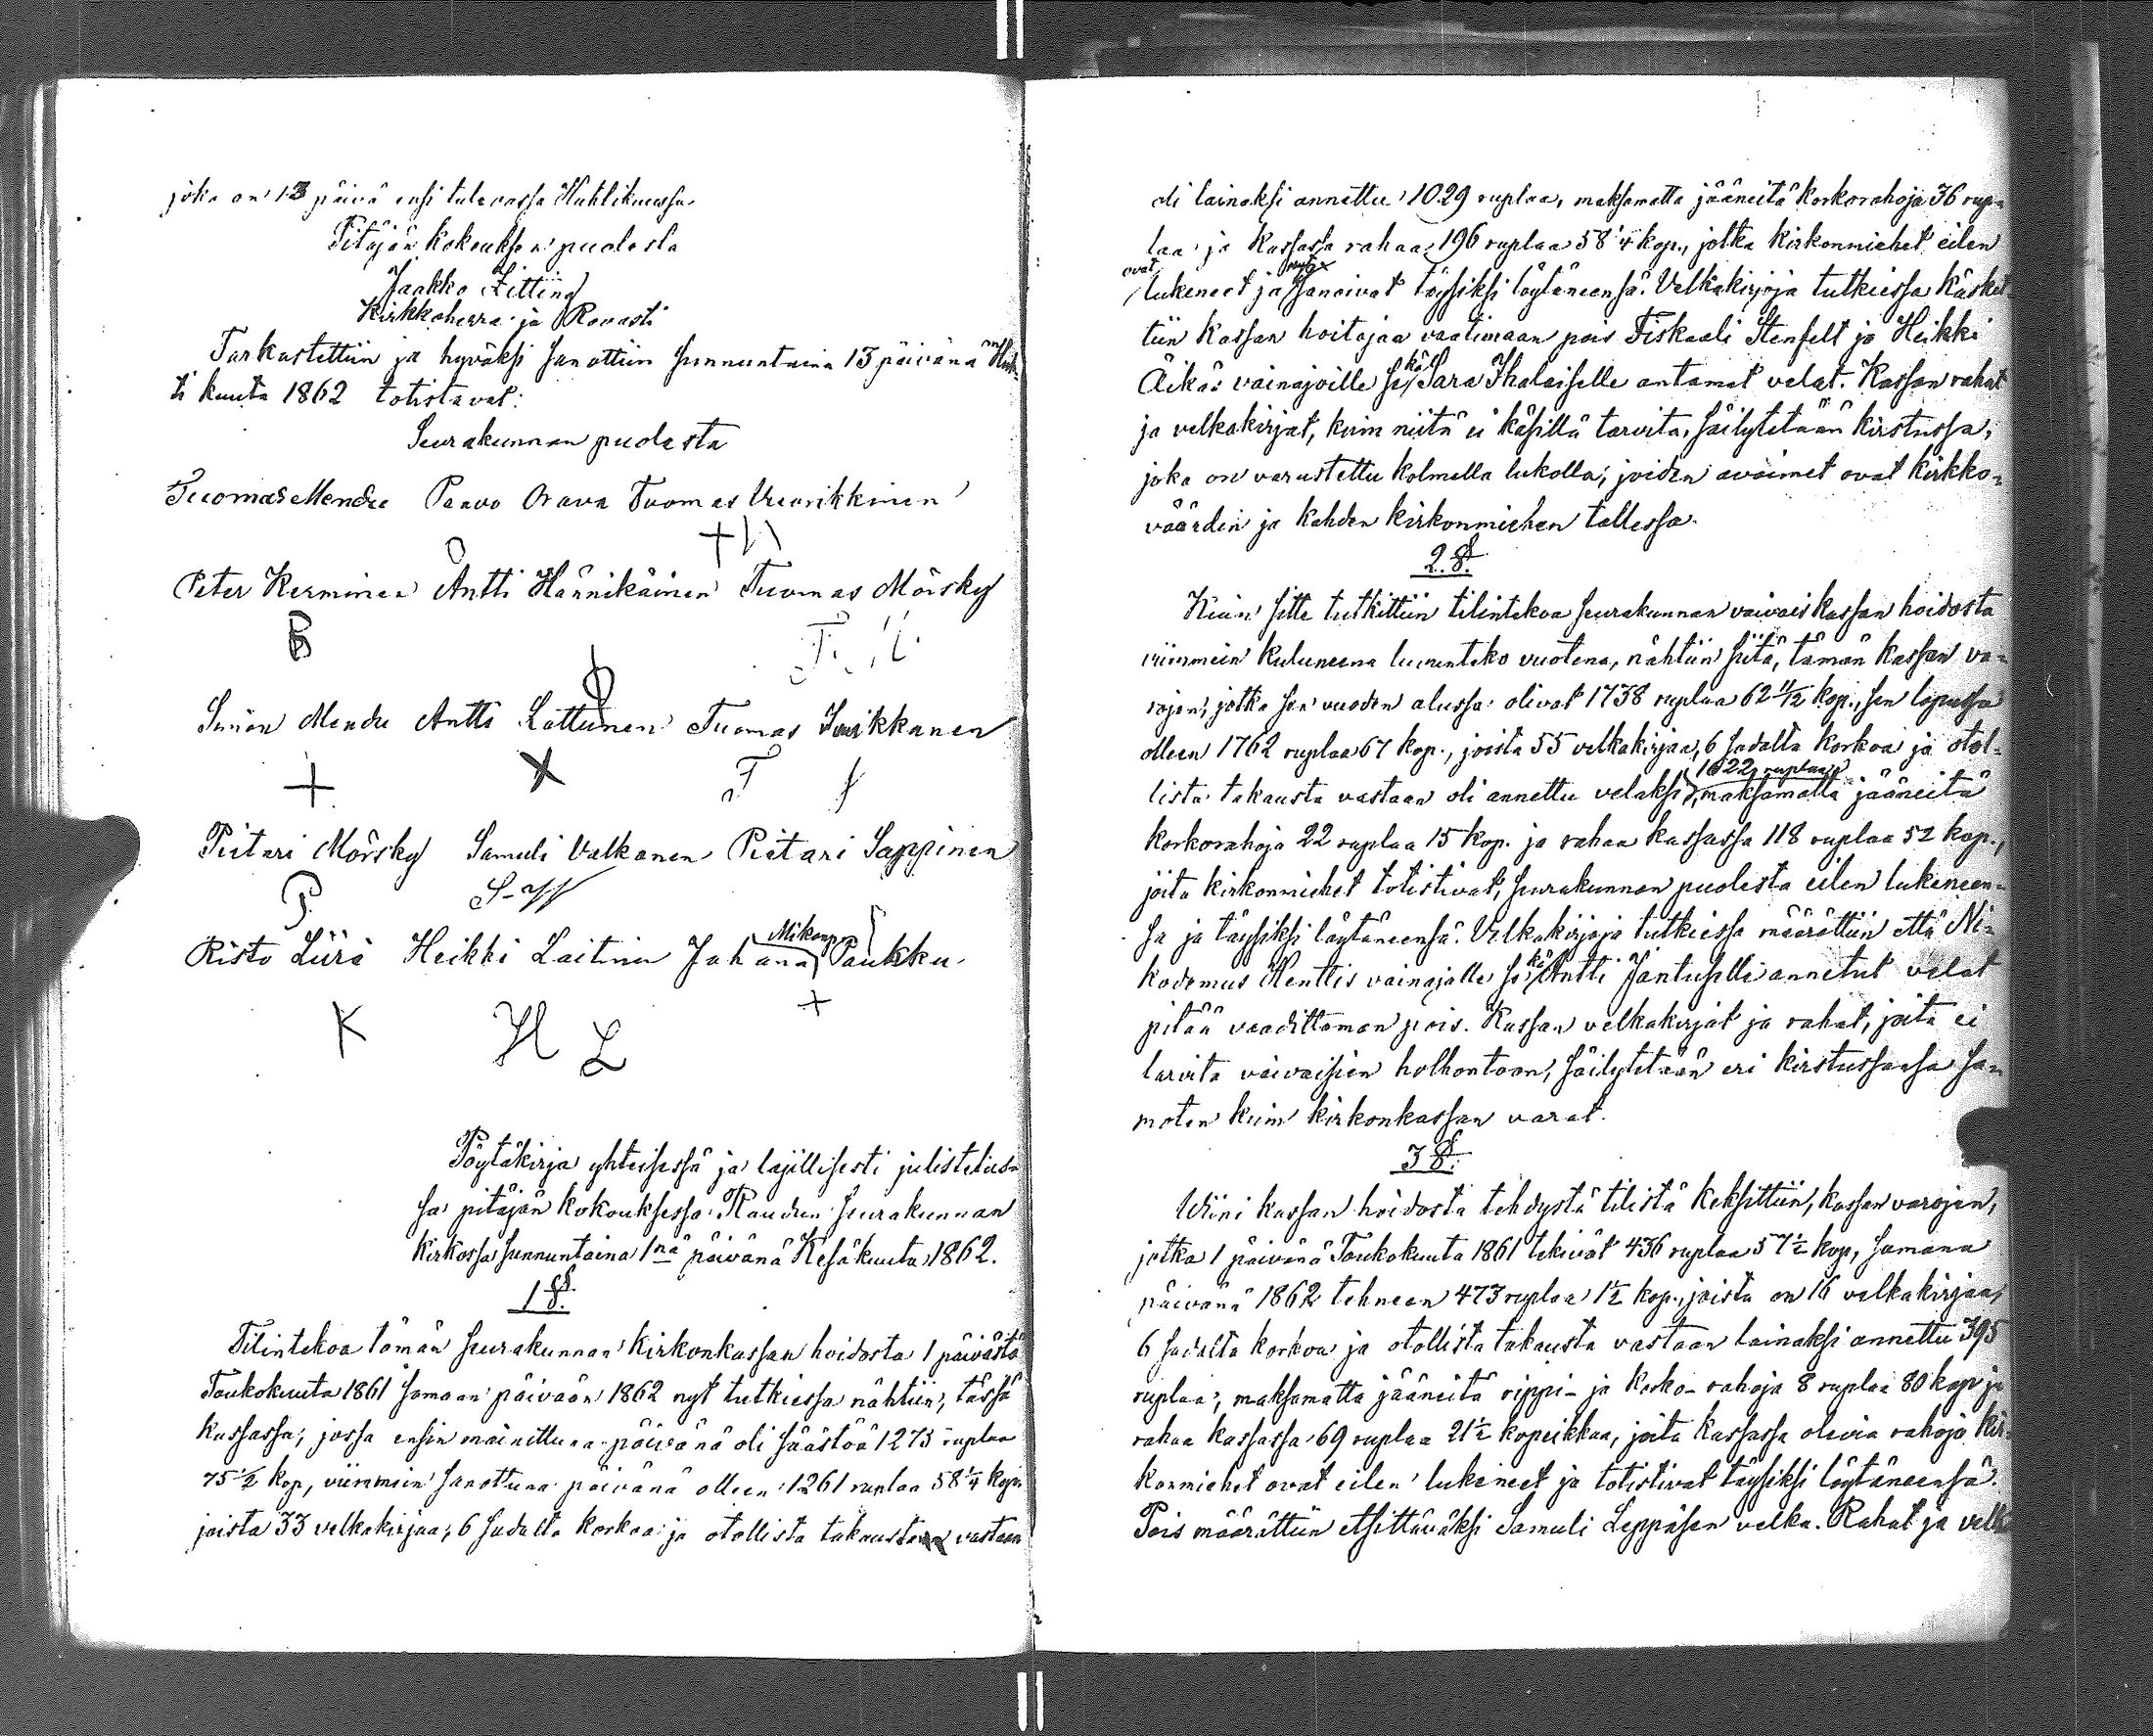 joka on 13 päivä ensi tulevassa Huhtikuussa.
Pitäjän kokouksen puolesta
Jaakko Litting
Kirkkoherra ja Rovasti
Tarkastettiin ja hyväksi sanottiin sunnuntaina 13 päivänä Huh-
ti kuuta 1862 totistavat:
Seurakunnan puolesta
Tuomas Mendu Paavo Orava Tuomas Vuorikkinen
Peter Kerminen Antti Hännikäinen Tuomas Mörsky
B
Simon Mendu Antti Lattunen Tuomas Suikkanen
+ X T
Pietari Mörsky Samuli Valkonen Pietari Sappinen
P
Risto Liiri Heikki Laitinen Juhana Mikonp. Paukku
K H L +
Pöytäkirja yhteisessä ja lajillisesti julistetus-
sa pitäjän kokouksessa Raudun seurakunnan
kirkossa sunnuntaina 1nä päivänä Kesäkuuta 1862.
1 §.
Tilintekoa tämän seurakunnan kirkonkassan hoidosta 1 päivästä
Toukokuuta 1861 samaan päivään 1862 nyt tutkiessa nähtiin, tässä
kassassa, jossa ensin mainittuna päivänä oli säästöä 1273 ruplaa
75 1/2 kop, viimmein sanottuna päivänä olleen 1261 ruplaa 58 1/4 kop.
joista 33 velkakirjaa, 6 sadalta korkoa ja otollista takausta vastaan
di lainaksi annettu 1029 ruplaa, maksamatta jääneitä korkorahoja 36 rup-
laa ja kassassa rahaa 196 ruplaa 58 1/4 kop., jotka kirkonmiehet eilen
ovat lukeneet ja nyt sanoivat täysiksi löytäneensä. Velkakirjoja tutkiessa käsket-
tiin kassan hoitajaa vaatimaan pois Fiskaali Stenfelt ja Heikki
Äikäs vainajoille sekä Sara Ihalaiselle antamat velat. Kassan rahat
ja velkakirjat, kuin niitä ei käsillä tarvita, säilytetään kirstussa,
joka on varustettu kolmella lukolla, joiden avaimet ovat kirkko-
väärdin ja kahden kirkonmiehen tallessa.
2 §.
Kuin sitte tutkittiin tilintekoa seurakunnan vaivaiskassan hoidosta
viimmein kuluneena luvunteko vuotena, nähtiin siitä, tämän kassan va-
rojen, jotka sen vuoden alussa olivat 1738 ruplaa 62 11/12 kop., sen lopussa
olleen 1762 ruplaa 67 kop., joista 55 velkakirjaa, 6 sadalta korkoa ja otol-
lista takausta vastaan oli annettu velaksi 1622 ruplaa, maksamatta jääneitä
korkorahoja 22 ruplaa 15 kop. ja rahaa kassassa 118 ruplaa 52 kop.,
joita kirkonmiehet totistivat, seurakunnan puolesta eilen lukeneen-
sa ja täysiksi löytäneensä. Velkakirjoja tutkiessa määrättiin että Ni-
kodemus Henttis vainajalle sekä Antti Jantuselle annetut velat
pitää vaadittaman pois. Kassan velkakirjat ja rahat, joita ei
tarvita vaivaisien holhontaan, säilytetään eri kirstussansa sa-
moten kuin kirkonkassan varat.
3 §.
Wiini kassan hoidosta tehdystä tilistä keksittiin, kassan varojen,
jotka 1 päivänä Toukokuuta 1861 tekivät 436 ruplaa 57 1/2 kop, samana
päivänä 1862 tehneen 473 ruplaa 1 1/2 kop., joista on 16 velkakirjaa,
6 sadalta korkoa ja otollista takausta vastaan lainaksi annettu 395
ruplaa, maksamatta jääneitä rippi- ja korko- rahoja 8 ruplaa 80 kop ja
rahaa kassassa 69 ruplaa 21 1/2 kopeikkaa, joita kassassa olevia rahoja kir-
konmiehet ovat eilen lukeneet ja totistivat täysiksi löytäneensä.
Pois määrättiin etsittäväksi Samuli Leppäsen velka. Rahat ja velka